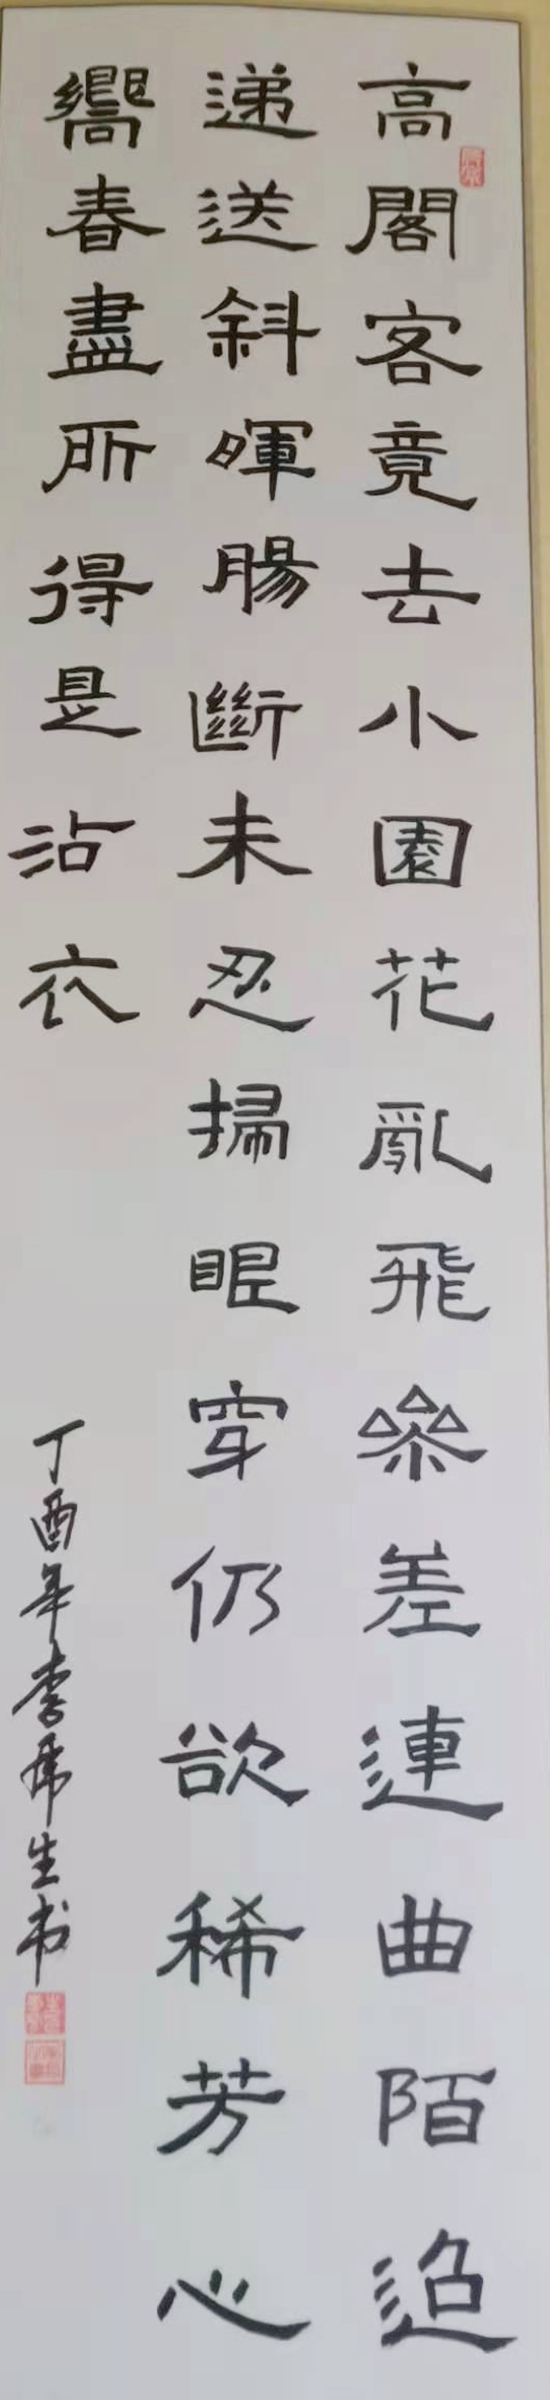 高閣客竟去小園花亂飛參差連曲陌迢
递送斜暉腸斷未忍掃眼穿仍欲稀芳心
嚮春盡所得是沾衣
丁酉年李生书